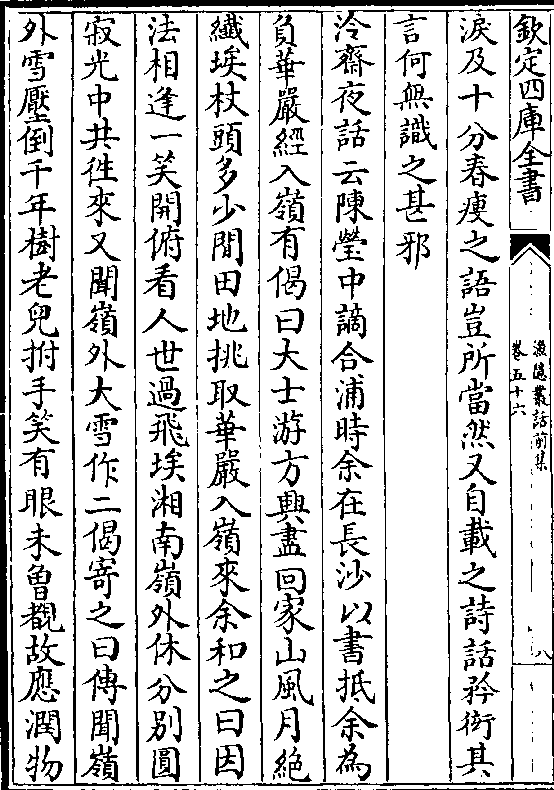 欽定四庫全書
漁隱叢話前集
卷五十六
淚及十分春瘦之語豈所當然又自載之詩話矜衒其
言何無識之甚邪
冷齋夜話云陳瑩中謫合浦時余在長沙以書抵余為
負華嚴經入嶺有偈曰大士游方興盡回家山風月絶
纖埃杖頭多少閒田地挑取華嚴入嶺來余和之曰因
法相逢一笑開俯看人世過飛埃湘南嶺外休分別圓
寂光中共徃來又聞嶺外大雪作二偈寄之曰傳聞嶺
外雪壓倒千年樹老兒拊手笑有眼未曾覩故應潤物